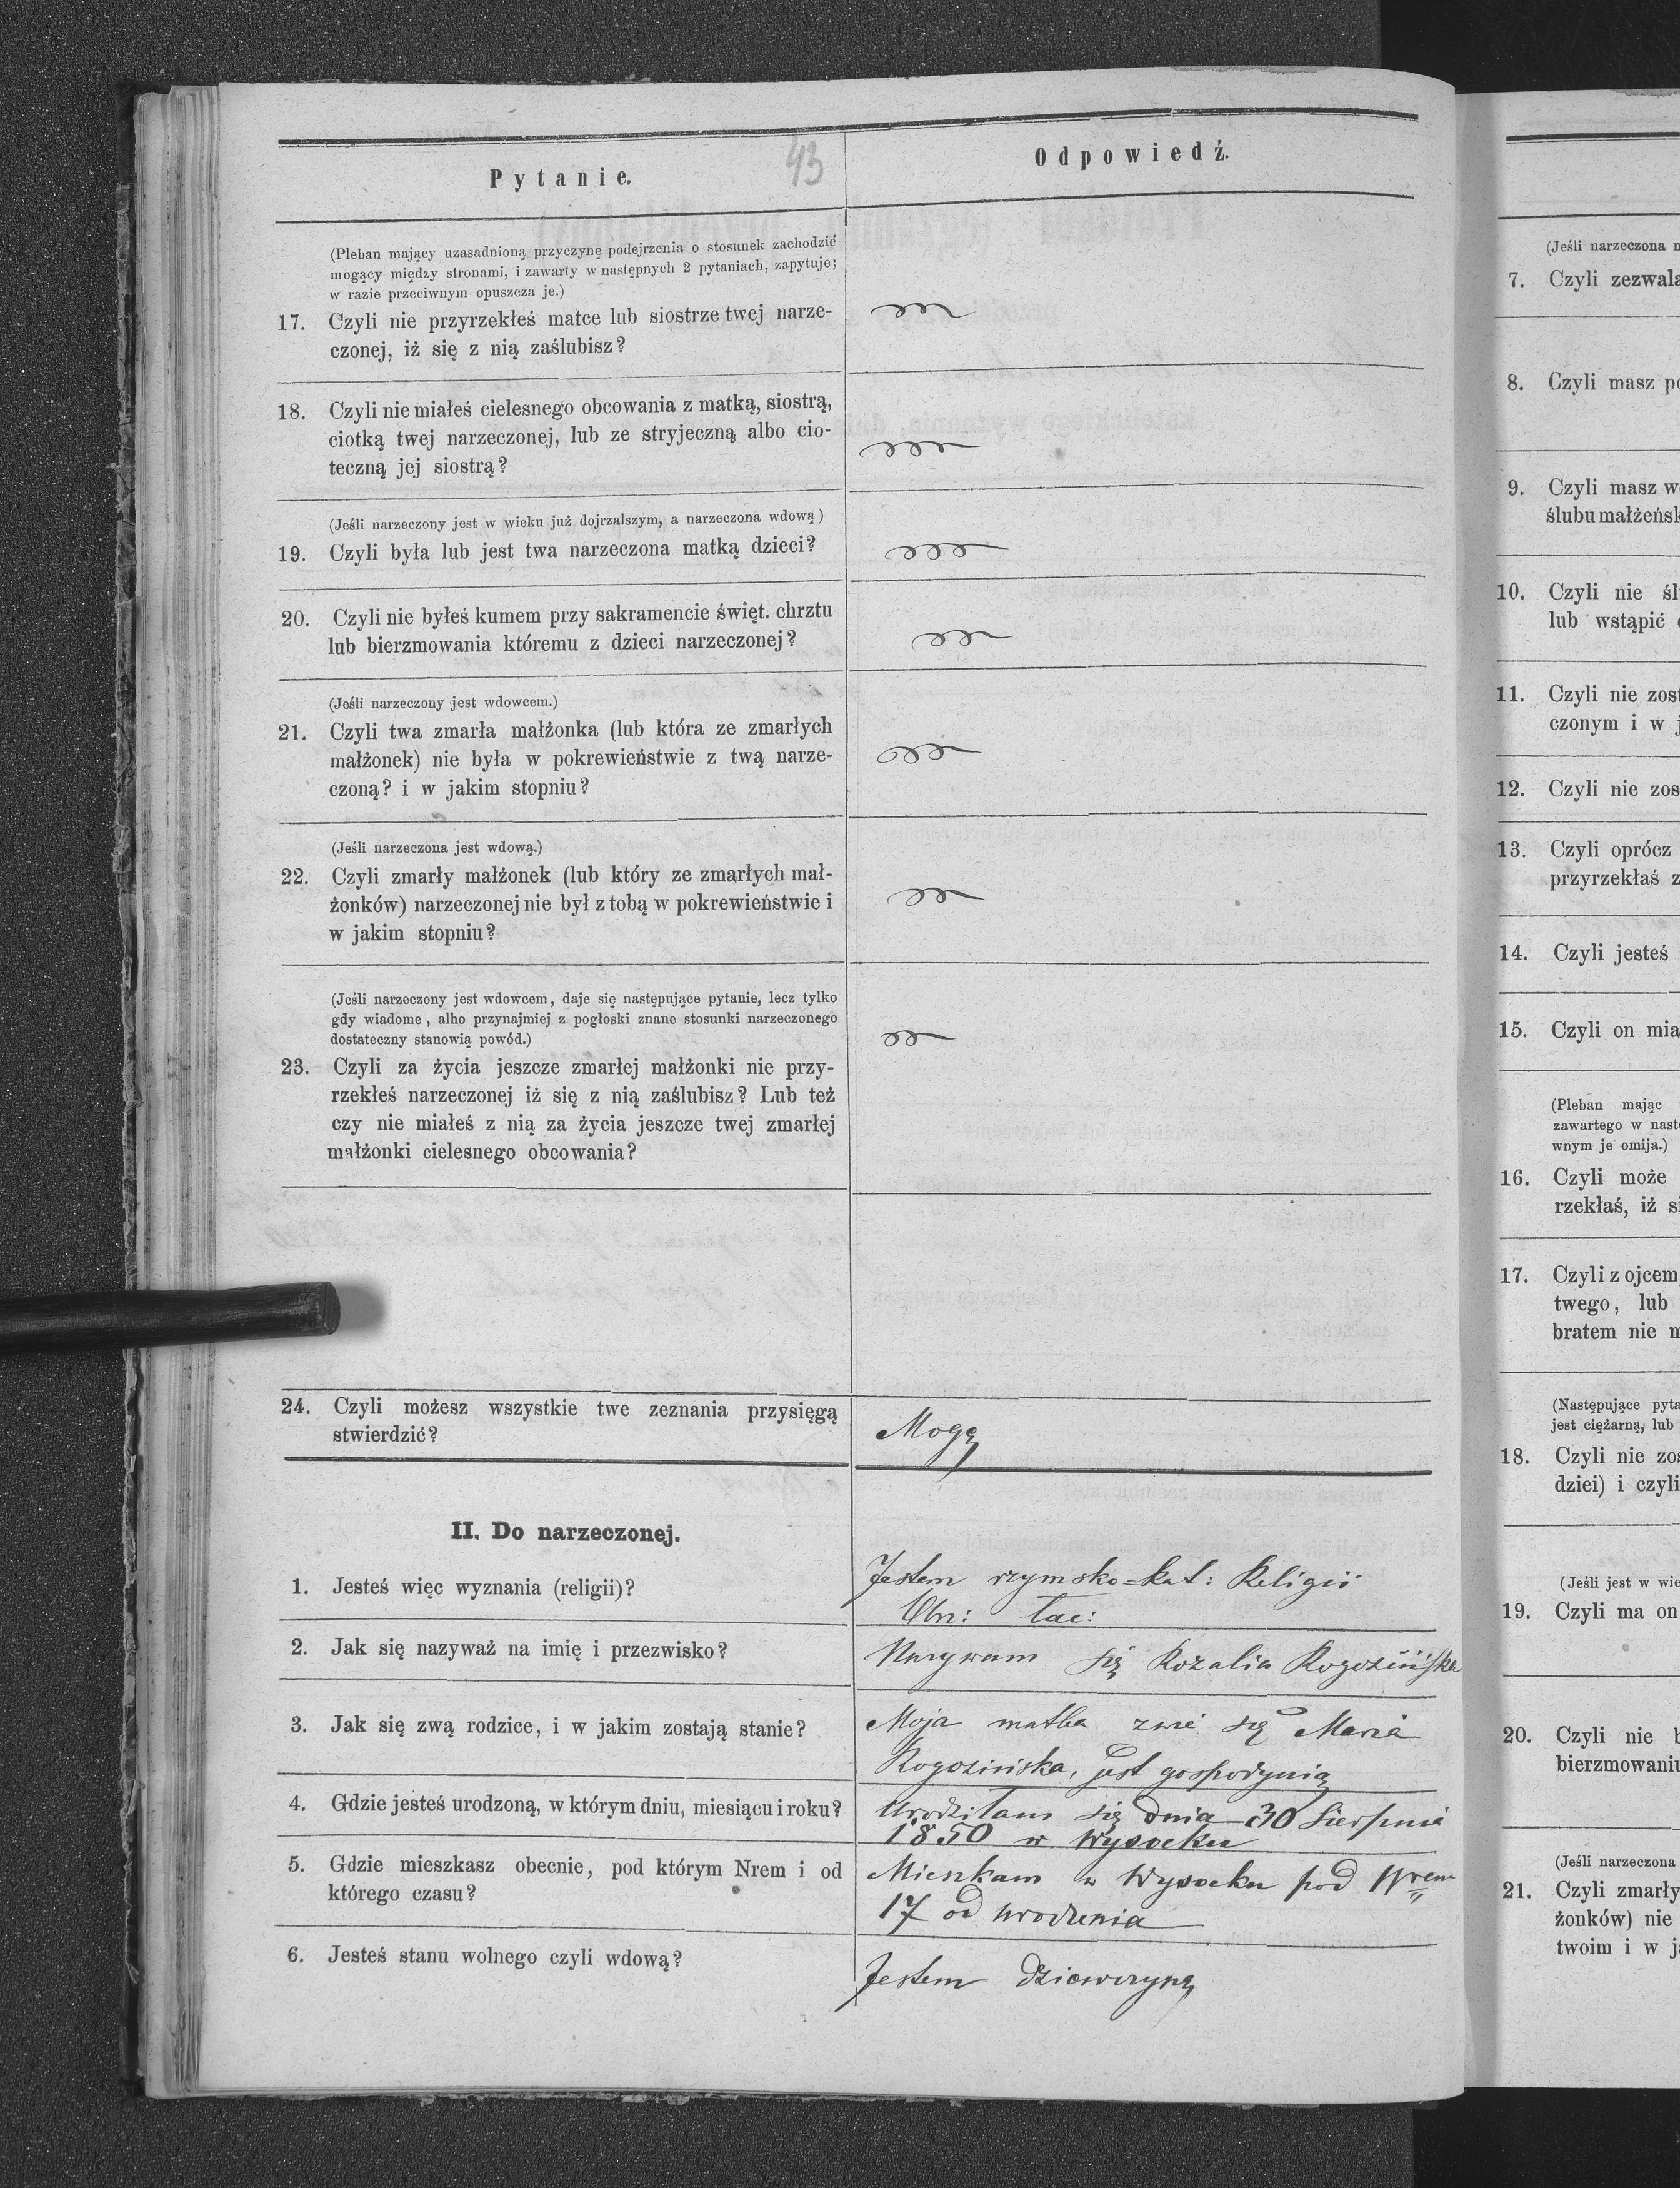 Pytanie.
43
Odpowiedź.
(Pleban mający uzasadnioną przyczynę podejrzenia o stosunek zachodzić
mogący między stronami, i zawarty w następnych 2 pytaniach, zapytuje;
w razie przeciwnym opuszcza je.)
17. Czyli nie przyrzekłeś matce lub siostrze twej narze-
czonej, iż się z nią zaślubisz?
18. Czyli nie miałeś cielesnego obcowania z matką, siostrą,
ciotką twej narzeczonej, lub ze stryjeczną albo cio-
teczną jej siostrą?
(Jeśli narzeczony jest w wieku już dojrzalszym, a narzeczona wdową)
19. Czyli była lub jest twa narzeczona matką dzieci?
20. Czyli nie byłeś kumem przy sakramencie święt. chrztu
lub bierzmowania któremu z dzieci narzeczonej?
(Jeśli narzeczony jest wdowcem.)
21. Czyli twa zmarła małżonka (lub która ze zmarłych
małżonek) nie była w pokrewieństwie z twą narze-
czoną? i w jakim stopniu?
(Jeśli narzeczona jest wdową.)
22. Czyli zmarły małżonek (lub który ze zmarłych mał-
żonków) narzeczonej nie był z tobą w pokrewieństwie i
w jakim stopniu?
(Jeśli narzeczony jest wdowcem, daje się następujące pytanie, lecz tylko
gdy wiadome, alho przynajmiej z pogłoski znane stosunki narzeczonego
dostateczny stanowią powód.)
23. Czyli za życia jeszcze zmarłej małżonki nie przy-
rzekłeś narzeczonej iż się z nią zaślubisz? Lub też
czy nie miałeś z nią za życia jeszcze twej zmarłej
małżonki cielesnego obcowania?
24. Czyli możesz wszystkie twe zeznania przysięgą
stwierdzić?
Mogę
II. Do narzeczonej.
1. Jesteś więc wyznania (religii)?
Jestem rzymsko=kat: Religii
Obrz: łac:
2. Jak się nazyważ na imię i przezwisko?
Nazywam się Rozalia Rogozińska
3. Jak się zwą rodzice, i w jakim zostają stanie?
Moja matka zwie się Maria
Rogozińska, jest gospodynią
4. Gdzie jesteś urodzoną, w którym dniu, miesiącu i roku?
Urodziłam się dnia 30 Sierpnia
1850 w Wysocku
5. Gdzie mieszkasz obecnie, pod którym Nrem i od
którego czasu?
Mieszkam w Wysocku pod Nrem
17 od urodzenia
6. Jesteś stanu wolnego czyli wdową?
Jestem dziewczyną
(Jeśli narzeczona
7. Czyli zezwala
8. Czyli masz
9. Czyli masz w
ślubu małżeńsk
10. Czyli nie śl
lub wstąpić
11. Czyli nie zost
czonym i w j
12. Czyli nie zos
13. Czyli oprócz
przyrzekłaś z
14. Czyli jesteś
15. Czyli on mia
(Pleban mając
zawartego w nast
wnym je omija.)
16. Czyli może
rzekłaś, iż si
17. Czyli z ojcem,
twego, lub
bratem nie m
(Następujące pyta
jest ciężarną, lub
18. Czyli nie zos
dziei) i czyli
(Jeśli jest w wie
19. Czyli ma on
20. Czyli nie b
bierzmowaniu
(Jeśli narzeczona
21. Czyli zmarły
żonków) nie
twoim i w j